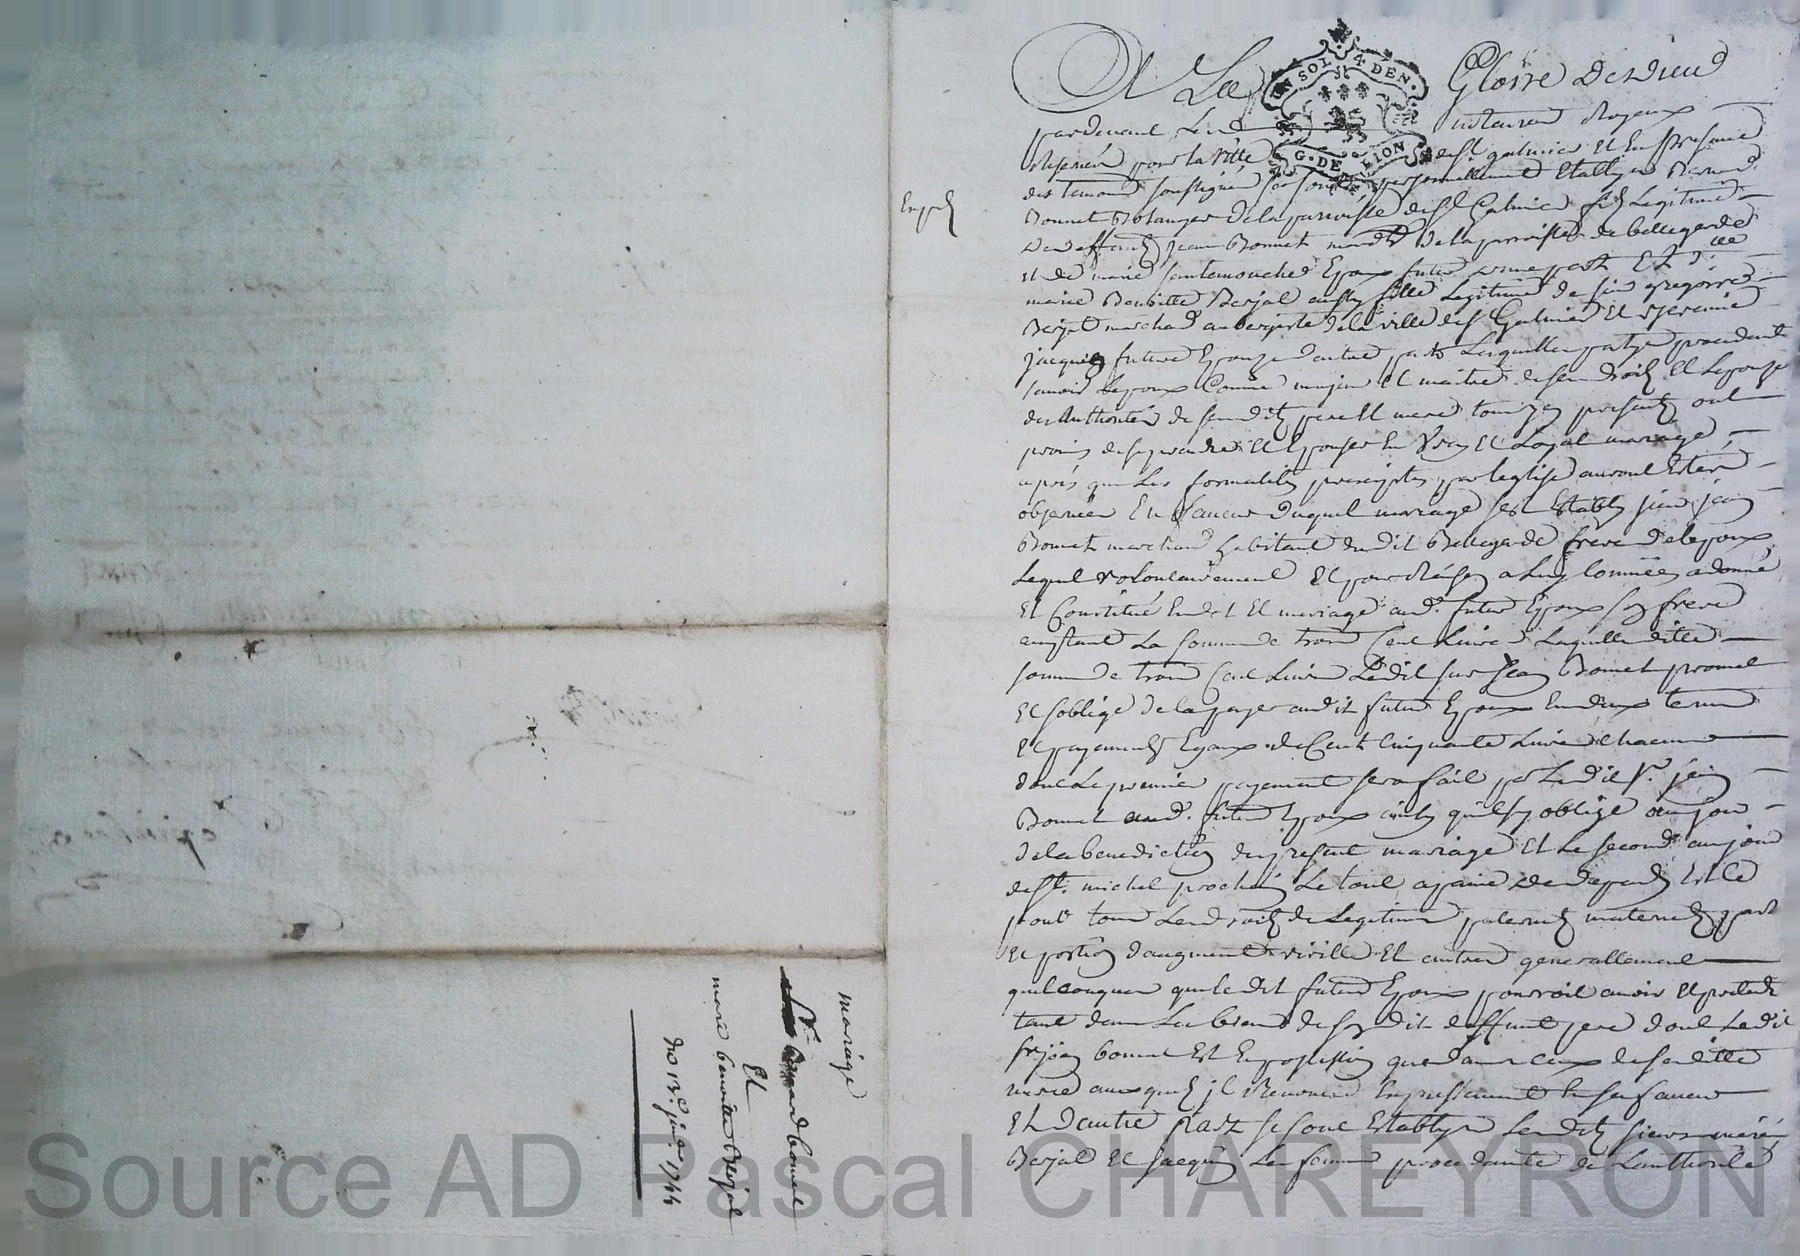 A La Gloire de Dieu
UN SOL 4 DEN.
G. DE LION
pardevant Les notaires Royaux
Reservés pour la Ville de St galmier et En presence
des temoins soussignés se sont personnellement Etablys Benard
Bonnet Bolanger de la parroisse de St Galmier fils Legitime
de deffunt Jean Bonnet marchd de la parroisse de bellegarde
et de marie santemouche Epoux futur d'une part Et dlle
marie Benoitte Berjal aussy fille Legitime de sieur gregoire
Berjal marchad aubergiste de la ville de St Galmier et
jacquier future Epouze d'autre part Lesquelles partyes procedant
scavoir Lepoux Comme majeur et maitre de ses droits et Lepouze
des Authorités de sesdits pere et mere tous icy presents ont
promis de se prendre et Epouser En Vray et Loyal mariage
après que Les formalités prescriptes par leglise auront Estées
observées En faveur duquel mariage sest Estably sieur jean
Bonnet marchand habitant dudit Bellegarde frere de lepoux
Lequel volontairement et pour a donné
Et Constitué En dot et mariage aud. futur Epoux son frere
acceptant La somme de trois Cent Livres Laquelle ditte
somme de trois Cent Livres Ledit sieur Jean Bonnet promet
Et soblige de la payer audit futur Epoux En deux termes
Et payements Egaux de Cent Cinquante Livres chacun
dont Le premier payement sera fait par Ledit Sr. jean
Bonnet aud. futur Epoux ainsy quil sy oblige au jour
de la benediction du present mariage Et Le second au jour
de St. michel prochain Le tout a peine de depends Et Ce
pour tous Les droits de Legitime paternels maternels part
et portion d'augment virille Et autres generallement
quelconques que le dit futur Epoux pourroit avoir et pretendre
tant dans Les biens de son dit deffunt pere dont Ledit
sr jean bonnet Est En possession que dans ceux de sa ditte
mere auxquels il Renonce Expressement En sa faveur
Et d'autre Part se sont Establys Lesdits sieurs mariés
Berjal Et Jacquier Sa femme procedante de Lauthorité
mariage
Sr benard bonnet
Et
marie benoitte Berjal
du 13e janv. 1744
Source AD Pascal CHAREYRON